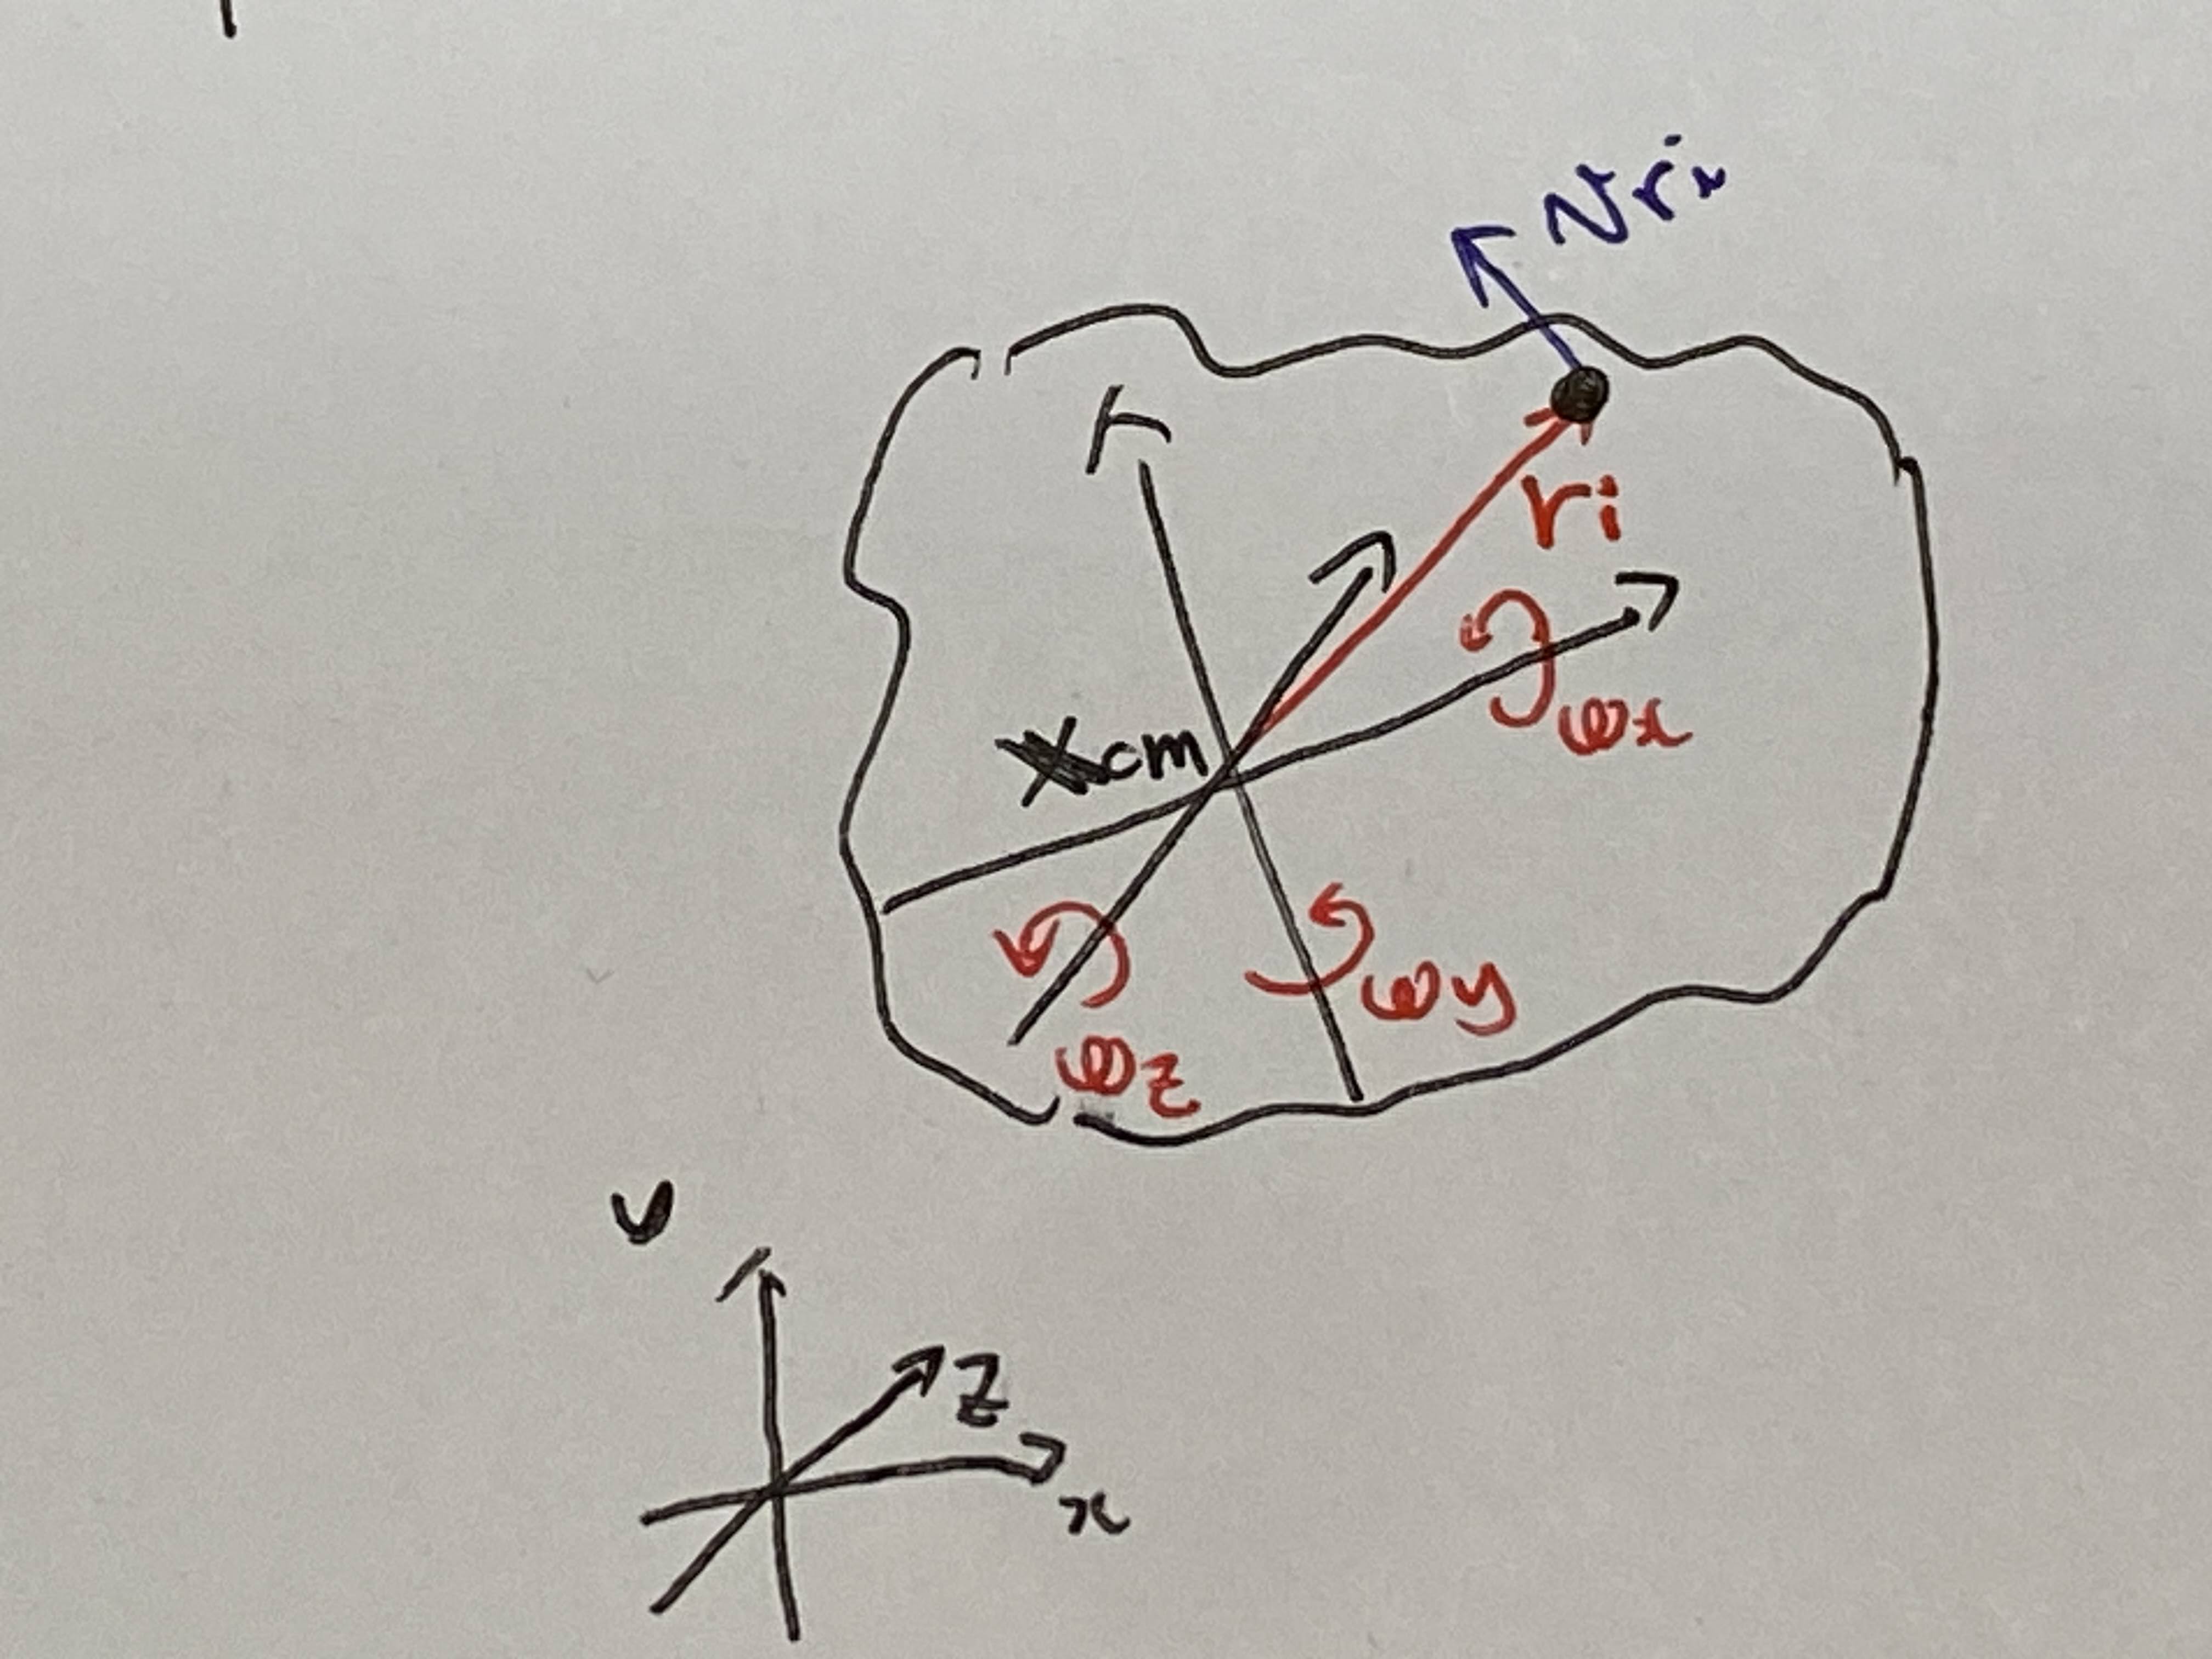 vri
ri
ωx
xcm
ωy
ωz
z
x